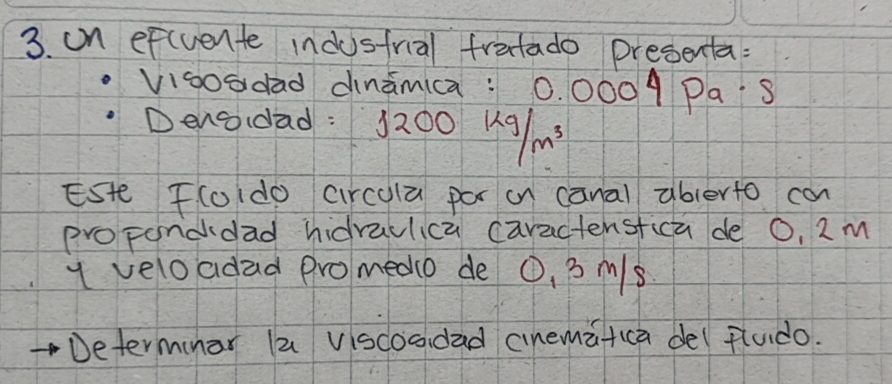 3. Un efluente industrial tratado presenta:
• Viscosidad dinámica: 0.0009 Pa·s
• Densidad: 1200 kg/m³
Este Fluido circula por un canal abierto con
profundidad hidraulica caracteristica de 0,2 m
y velocidad promedio de 0,3 m/s.
→ Determinar la viscosidad cinemática del fluido.